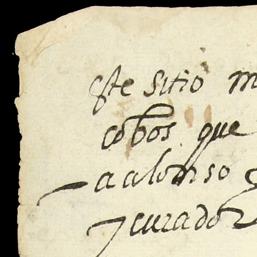 este sitio m
cobos que
a alonso
y curador